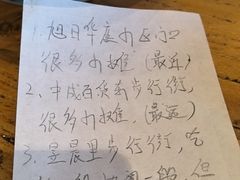 1. 旭日华庭小区门口
很多小摊（最近）
2. 中成百货前步行街,
很多小摊.（最远）
3. 昱晨里步行街, 吃